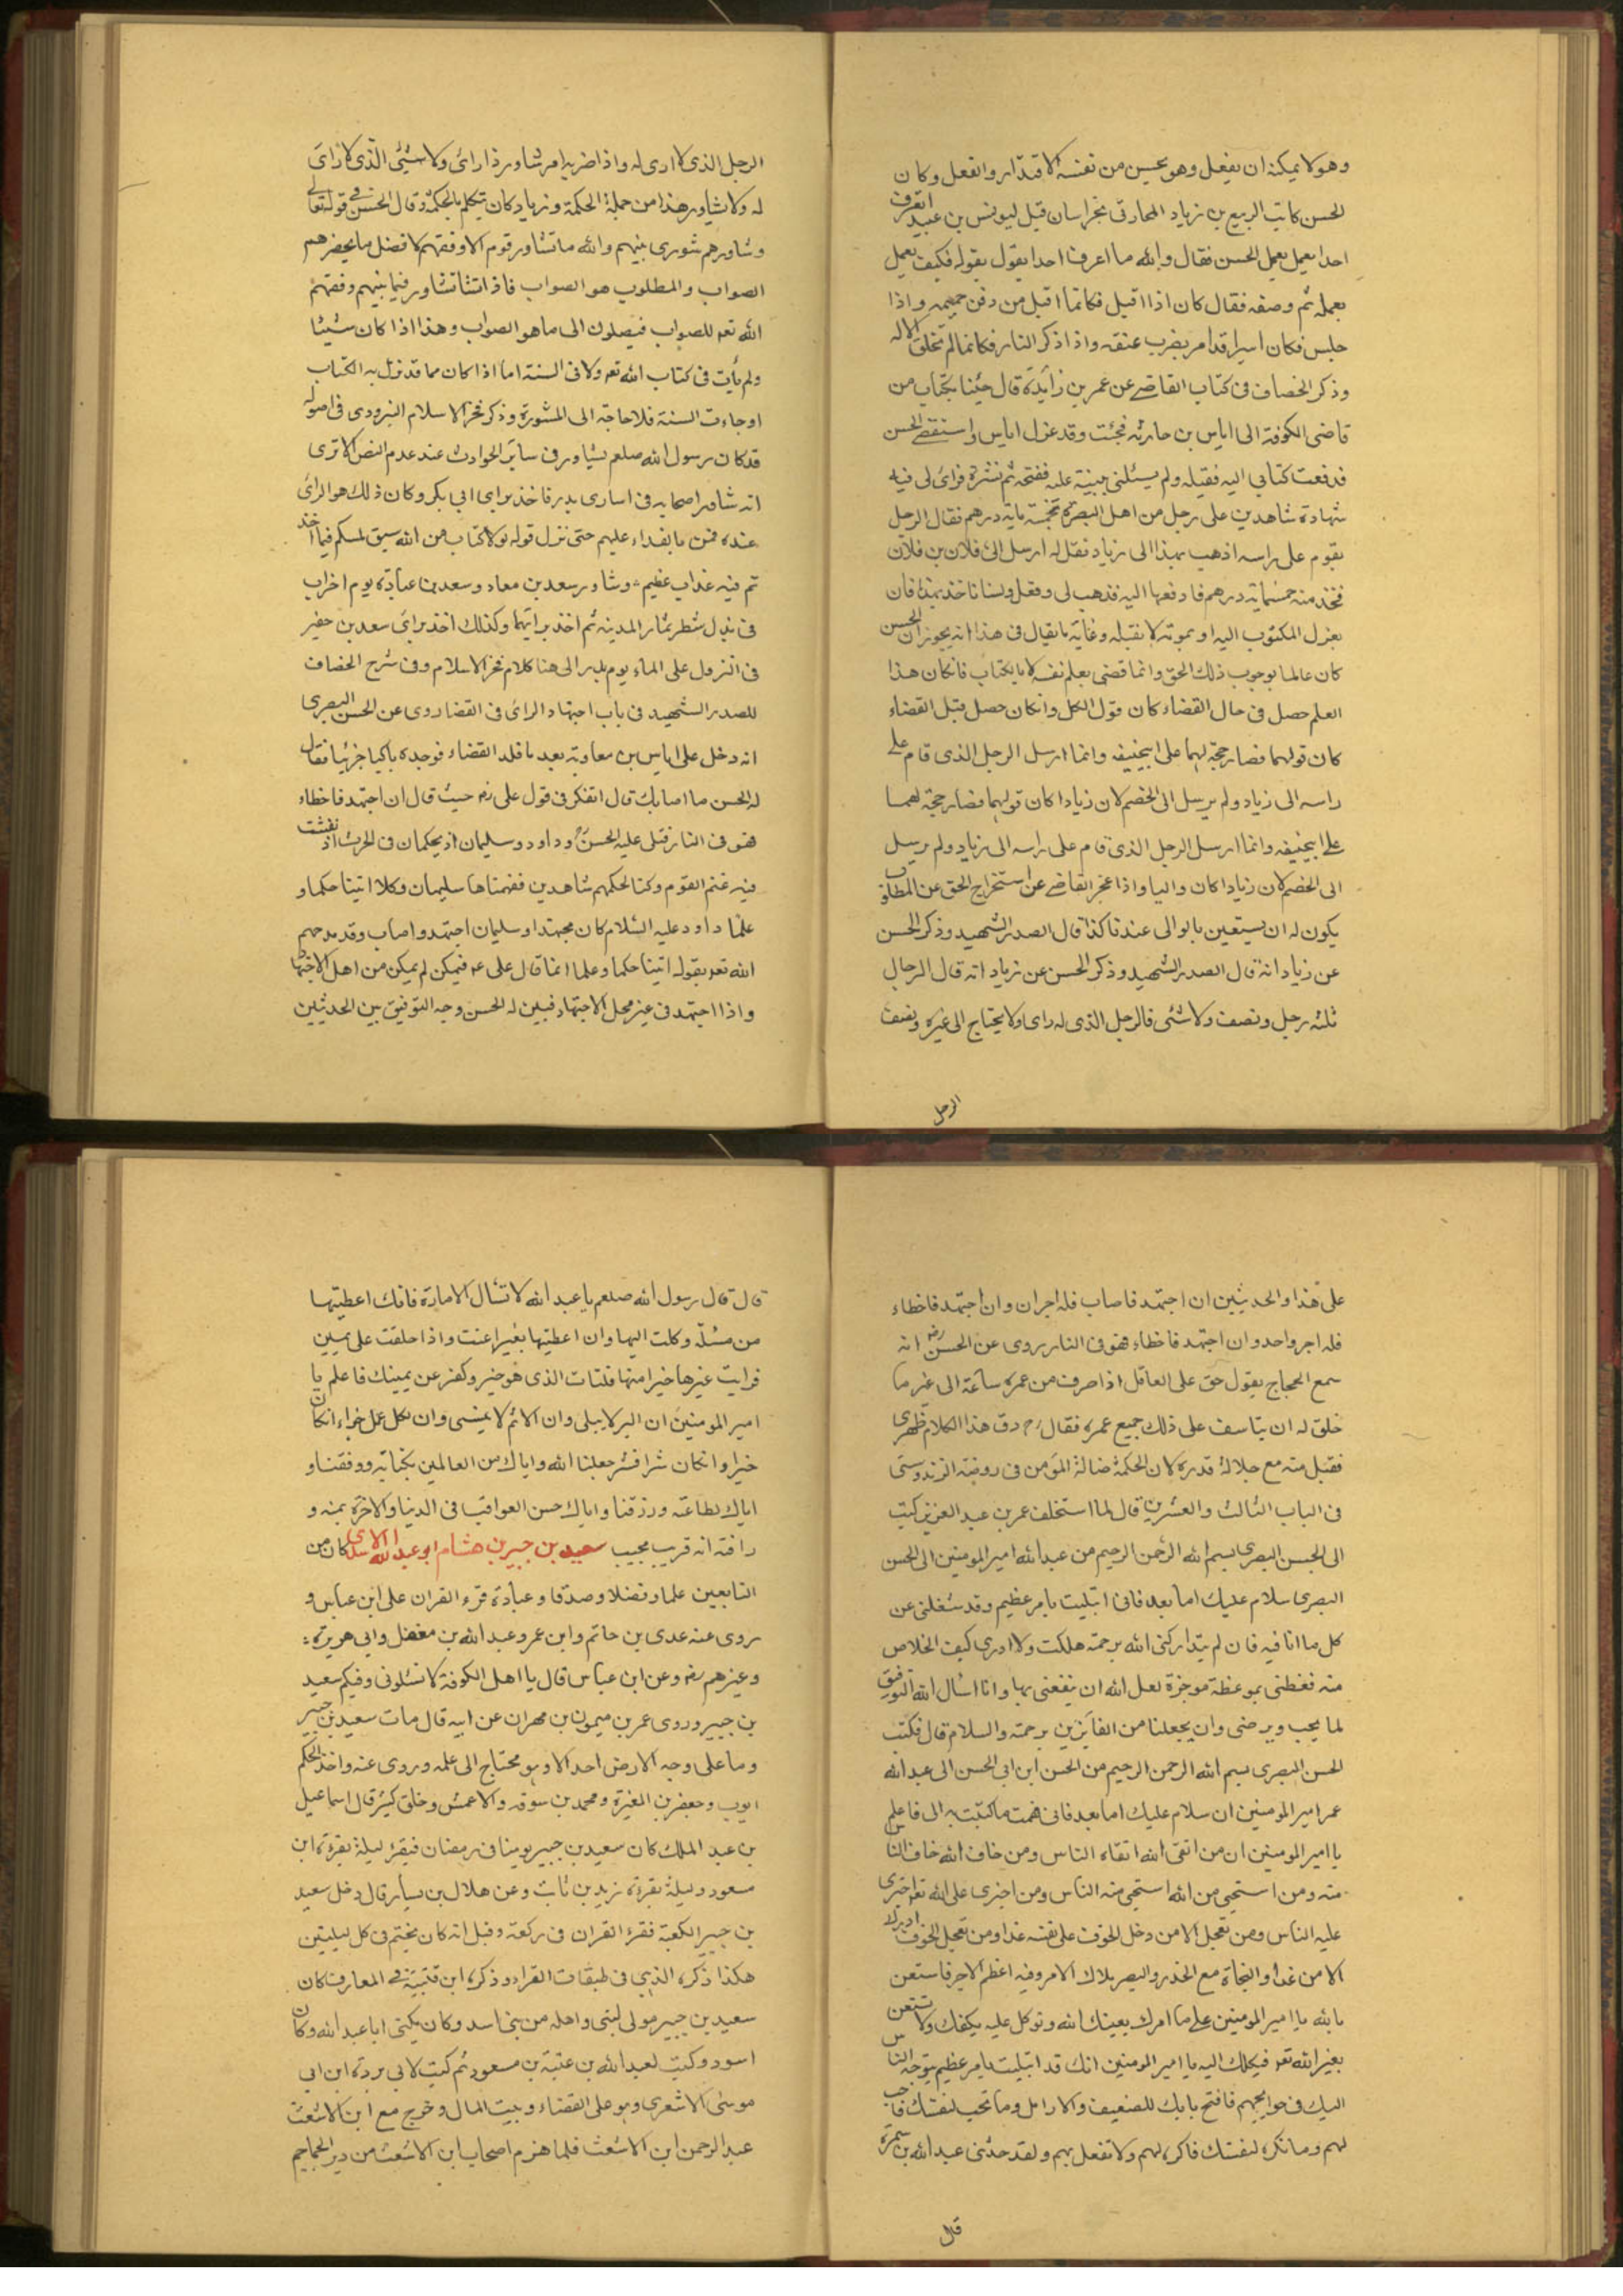 وهو لا يمكنه ان يفعل وهو يحسن من نفسه الاقتدار والفعل وكان
الحسن كاتب الربيع بن زياد المحارقى بخراسان قيل ليونس بن عبيد اتعرف
احدا يعمل بعمل الحسن فقال والله ما اعرف احدا يقول بقوله فكيف يعمل
بعمله ثم وصفه فقال كان اذا اقبل فكانما اقبل من دفن حميمه واذا
جلس فكان اسيرا قد امر بضرب عنقه واذا ذكر النار فكانما لم تخلق الا له
وذكر الخصاف فى كتاب القاضے عن عمر بن زائدة قال جئنا بكتاب من
قاضى الكوفة الى اياس بن حارثه فجئت وقد عزل اياس واستقضے الحسن
فدفعت كتابي اليه فقبله ولم يسئلنى ببينة عليه ففتحه ثم نشره فراى لى فيه
شهادة شاهدين على رجل من اهل البصرة بخمسة مايه درهم فقال الرجل
يقوم على راسه اذهب بهذا الى زياد فقل له ارسل الى فلان بن فلان
فخذ منه خمسمايه درهم فادفعها اليه فذهب لى وفعل
بعزل المكتوب اليه او بموته لا نقبله وغاية ما يقال فى هذا انه يجوز ان الحسن
كان عالما بوجوب ذلك الحق وانما قضى بعلم نفسه لا بالكتاب فان كان هذا
العلم حصل فى حال القضاء كان قول الكل وان كان حصل قبل القضاء
كان قولهما فصار حجة لهما على ابيحنيفه وانما ارسل الرجل الذى قام علے
راسه الى زياد ولم يرسل الى الخصم لان زيادا كان قولهما فصار حجة لهما
علے ابيحنيفه وانما ارسل الرجل الذى قام على راسه الى زياد ولم يرسل
الى الخصم لان زيادا كان واليا واذا عجز القاضے عن استخراج الحق عن المطلوب
يكون له ان يستعين بالوالى عندنا كذا قال الصدر الشهيد وذكر الحسن
عن زياد انه قال الصدر الشهيد وذكر الحسن عن زياد انه قال الرجال
ثلثه رجل ونصف ولا شئ فالرجل الذى له راى ولا يحتاج الى غيره ونصف
الرجل
الرجل الذى لا ارى له واذا ضربه امر شاور ذا رائ ولا شيئى الّذى لا رائ
له ولا يشاور هذا من جملة الحكمة وزياد كان يتكلم بالحكمة وقال الحسن فے قوله تعالے
وشاورهم شورى بينهم والله ما تشاور قوم الا وفقهم لافضل ما يحضرهم
الصواب والمطلوب هو الصواب فاذا تشاور فيما بينهم وفقهم
الله تعه للصواب فيصلون الى ما هو الصواب وهذا اذا كان شيئا
ولم يأت فى كتاب الله تعه ولا فى السنة اما اذا كان مما قد نزل به الكتاب
او جاءت السنة فلا حاجة الى المشورة وذكر فخر الاسلام البزدوى فى اصوله
قد كان رسول الله صلعم يشاور فى سائر الحوادث عند عدم النص الا ترى
انه شاور اصحابه فى اسارى بدر فاخذ براى ابي بكر وكان ذلك هو الرائ
عنده فمن بالفداء عليهم حتى نزل قوله لولا كتاب من الله سبق لمسكم فيما اخذ
تم فيه عذاب عظيم وشاور سعد بن معاد وسعد بن عبادة يوم احزاب
فى بذل شطر ثمار المدينه ثم اخذ برايهما وكذلك اخذ براى سعد بن حفير
فى النزول على الماء يوم بدر الى هنا كلام فخر الاسلام وفى شرح الخصاف
للصدر الشهيد فى باب اجتهاد الرائ فى القضا روى عن الحسن البصرى
انه دخل على اياس بن معاوية بعد ما قلد القضاء فوجده باكيا حزينا فقال
له الحسن ما اصابك قال اتفكر فى قول على رضه حيث قال ان اجتهد فاخطاء
فهو فى النار فتلى عليه الحسن وداود وسليمان اذ يحكمان فى الحرث اذ نفشت
فيه غنم القوم وكنا لحكمهم شاهدين ففهمناها سليمان وكلا اتينا حكما و
علما داود عليه السلام كان مجتهدا وسليمان اجتهد واصاب وقد مدحهم
الله تعه بقوله اتينا حكما وعلما انما قال على عه فيمكن لم يكن من اهل الاجتها
واذا اجتهد فى غير محل الاجتهاد فبين له الحسن وجه التوفيق بين الحديثين
على هذا والحديثين ان اجتهد فاصاب فله اجران وان اجتهد فاخطاء
فله اجر واحد وان اجتهد فاخطاء فهو فى النار يروى عن الحسن رضه انه
سمع الحجاج يقول حق على العاقل اذا صرف من عمره ساعة الى غير ما
خلق له ان يتاسف على ذلك جميع عمره فقال دق هذا الكلام ظهرى
فقبل منه مع جلالة قدره لان الحكمة ضالة المؤمن فى روضة الزندوستى
فى الباب الثالث والعشرين قال لما استخلف عمر بن عبد العزيز كتب
الى الحسن البصرى بسم الله الرحمن الرحيم من عبد الله امير المومنين الى الحسن
البصرى سلام عليك اما بعد فانى ابتليت بامر عظيم وقد شغلنى عن
كل ما انا فيه فان لم يتداركنى الله برحمة هلكت ولا ادرى كيف الخلاص
منه فعظنى بموعظة موجزة لعل الله ان ينفعنى بها وانا اسال الله التوفيق
لما يحب ويرضى وان يجعلنا من الفائزين برحمته والسلام قال فكتب
الحسن البصرى بسم الله الرحمن الرحيم من الحسن ابن ابى الحسن الى عبد الله
عمر امير المومنين ان سلام عليك اما بعد فانى فهمت ما كتبت به الى فاعلم
يا امير المومنين ان من اتقى الله اتقاه الناس ومن خاف الله خاف الناس
منه ومن استحى من الله استحى منه الناس ومن اجترى على الله تعه اجترى
عليه الناس ومن تعجل الامن دخل الخوف على نفسه غدا ومن تعجل الخوف ادرك
الامن غدا والنجاة مع الحذر والبصر ملاك الامر وفيه اعظم الاجر فاستعن
بالله يا امير المومنين علے ما امرك يعينك الله وتوكل عليه يكفك ولا تستعن
بغير الله تعه فيكلك اليه يا امير المومنين انك قد ابتليت بامر عظيم يتوجه الناس
اليك فى حوايجهم فافتح بابك للضعيف والارامل وما تحب لنفسك فاحب
لهم وما تكره لنفسك فاكره لهم ولا تفعل بهم ولقد حدثنى عبد الله بن سمرة
قال
قال قال رسول الله صلعم يا عبد الله لا تسال الامارة فانك اعطيتها
من مسئلة وكلت اليها وان اعطيتها بغير اعنت واذا حلفت على يمين
فرايت غيرها خيرا منها فلتات الذى هو خير وكفر عن يمينك فاعلم يا
امير المومنين ان البر لا يبلى وان الاثم لا ينسى وان لكل عمل جزاء ان كان
خيرا وان كان شرا فشر جعلنا الله واياك من العالمين بكتابه ووفقنا و
اياك لطاعته ورزقنا واياك حسن العواقب فى الدنيا والاخرة بمنه و
رافته انه قريب مجيب سعيد بن جبير بن هشام ابو عبد الله الاسدى كان من
التابعين علما وفضلا وصدقا وعبادة قرء القران على ابن عباس و
روى عنه عدى بن حاتم وابن عمر وعبد الله بن مغفل وابي هريرة
وغيرهم رضه وعن ابن عباس قال يا اهل الكوفة لا تسئلونى وفيكم سعيد
بن جبير وروى عمر بن ميمون بن مهران عن ابيه قال مات سعيد بن جبير
وما على وجه الارض احد الا وهو محتاج الى علمه وروى عنه واخذ الحكم
ايوب وجعفر بن المغيرة ومحمد بن سوقه والاعمش وخلق كثير قال اسماعيل
بن عبد الملك كان سعيد بن جبير يومنا فى رمضان فيقرء ليلة بقرءة ابن
مسعود وليلة بقرءة زيد بن ثابت وعن هلال بن يسار قال دخل سعيد
بن جبير الكعبة فقرء القران فى ركعة وقيل انه كان يختم فى كل ليلتين
هكذا ذكره الذهبي فى طبقات القراء وذكره ابن قتيبة فے المعارف كان
سعيد بن جبير مولى لبنى واهله من بنى اسد وكان يكنى ابا عبد الله وكان
اسود وكتب لعبد الله بن عتبة بن مسعود ثم كتب لابي بردة ابن ابي
موسى الاشعرى وهو على القضاء وبيت المال وخرج مع ابن الاشعث
عبد الرحمن ابن الاشعث فلما هزم اصحاب ابن الاشعث من دير الجماجم